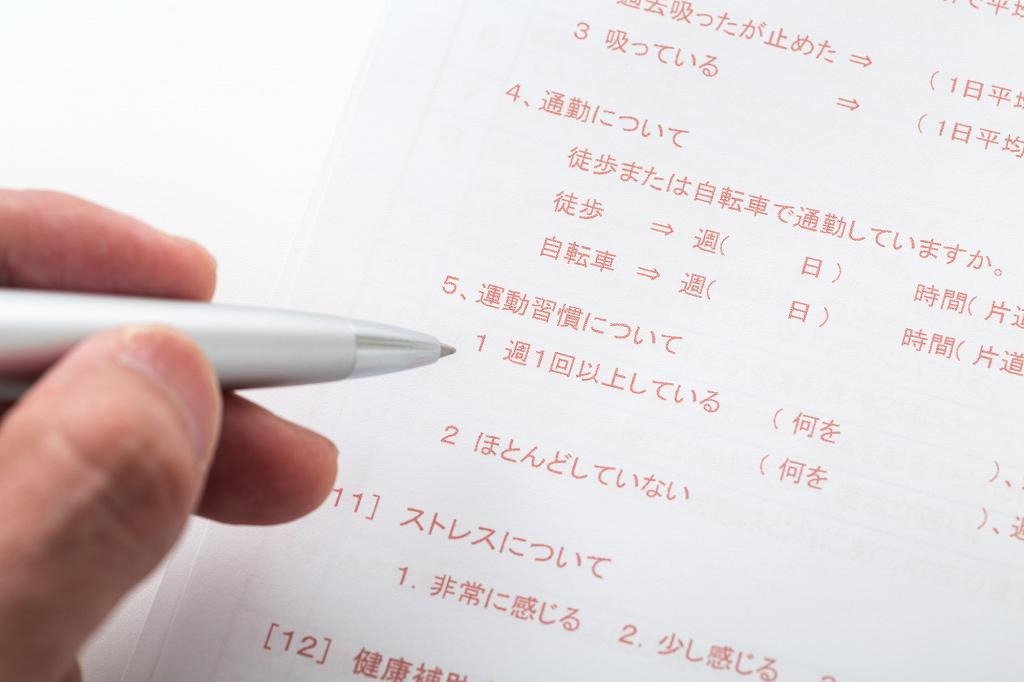 過去吸ったが止めた ⇒ (1日平均
3 吸っている ⇒ (1日平均
4、通勤について
徒歩または自転車で通勤していますか。
徒歩 ⇒ 週( 日) 時間(片道
自転車 ⇒ 週( 日) 時間(片道
5、運動習慣について
1 週1回以上している (何を )、
2 ほとんどしていない (何を )、週
[11] ストレスについて
1. 非常に感じる 2. 少し感じる
[12] 健康補助